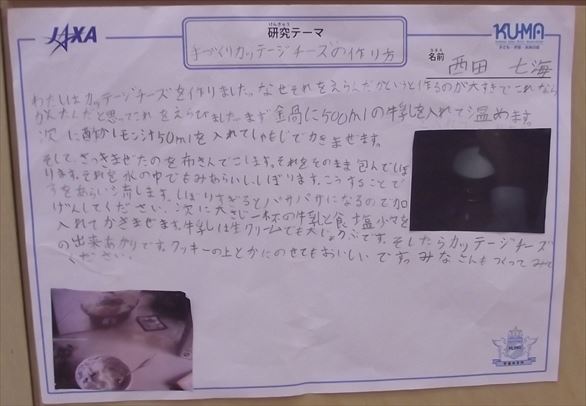 JAXA
けんきゅう
研究テーマ
手づくりカッテージチーズの作り方
KUMA
名前
西田 七海
わたしはカッテージチーズを作りました。なぜそれをえらんだかというと作るのが大すきでこれなら
かんたんだと思ってこれをえらびました。まず鍋に500mlの牛乳を入れて温めます。
次に酢かレモン汁50mlを入れてしゃもじでかきませます。
そして、さっきまぜたのを布きんでこします。それをそのまま包んでしば
ります。それを水の中でもみあらいし、しぼります。こうすることで
すをあらい流します。しぼりすぎるとパサパサになるので加
げんしてください。次に大さじ一杯の牛乳と食塩少々を
入れてかきまぜます。牛乳は生クリームでも大じょうぶです。そしたらカッテージチーズ
の出来あがりです。クッキーの上とかにのせてもおいしいです。みなさんもつくってみて
ください。